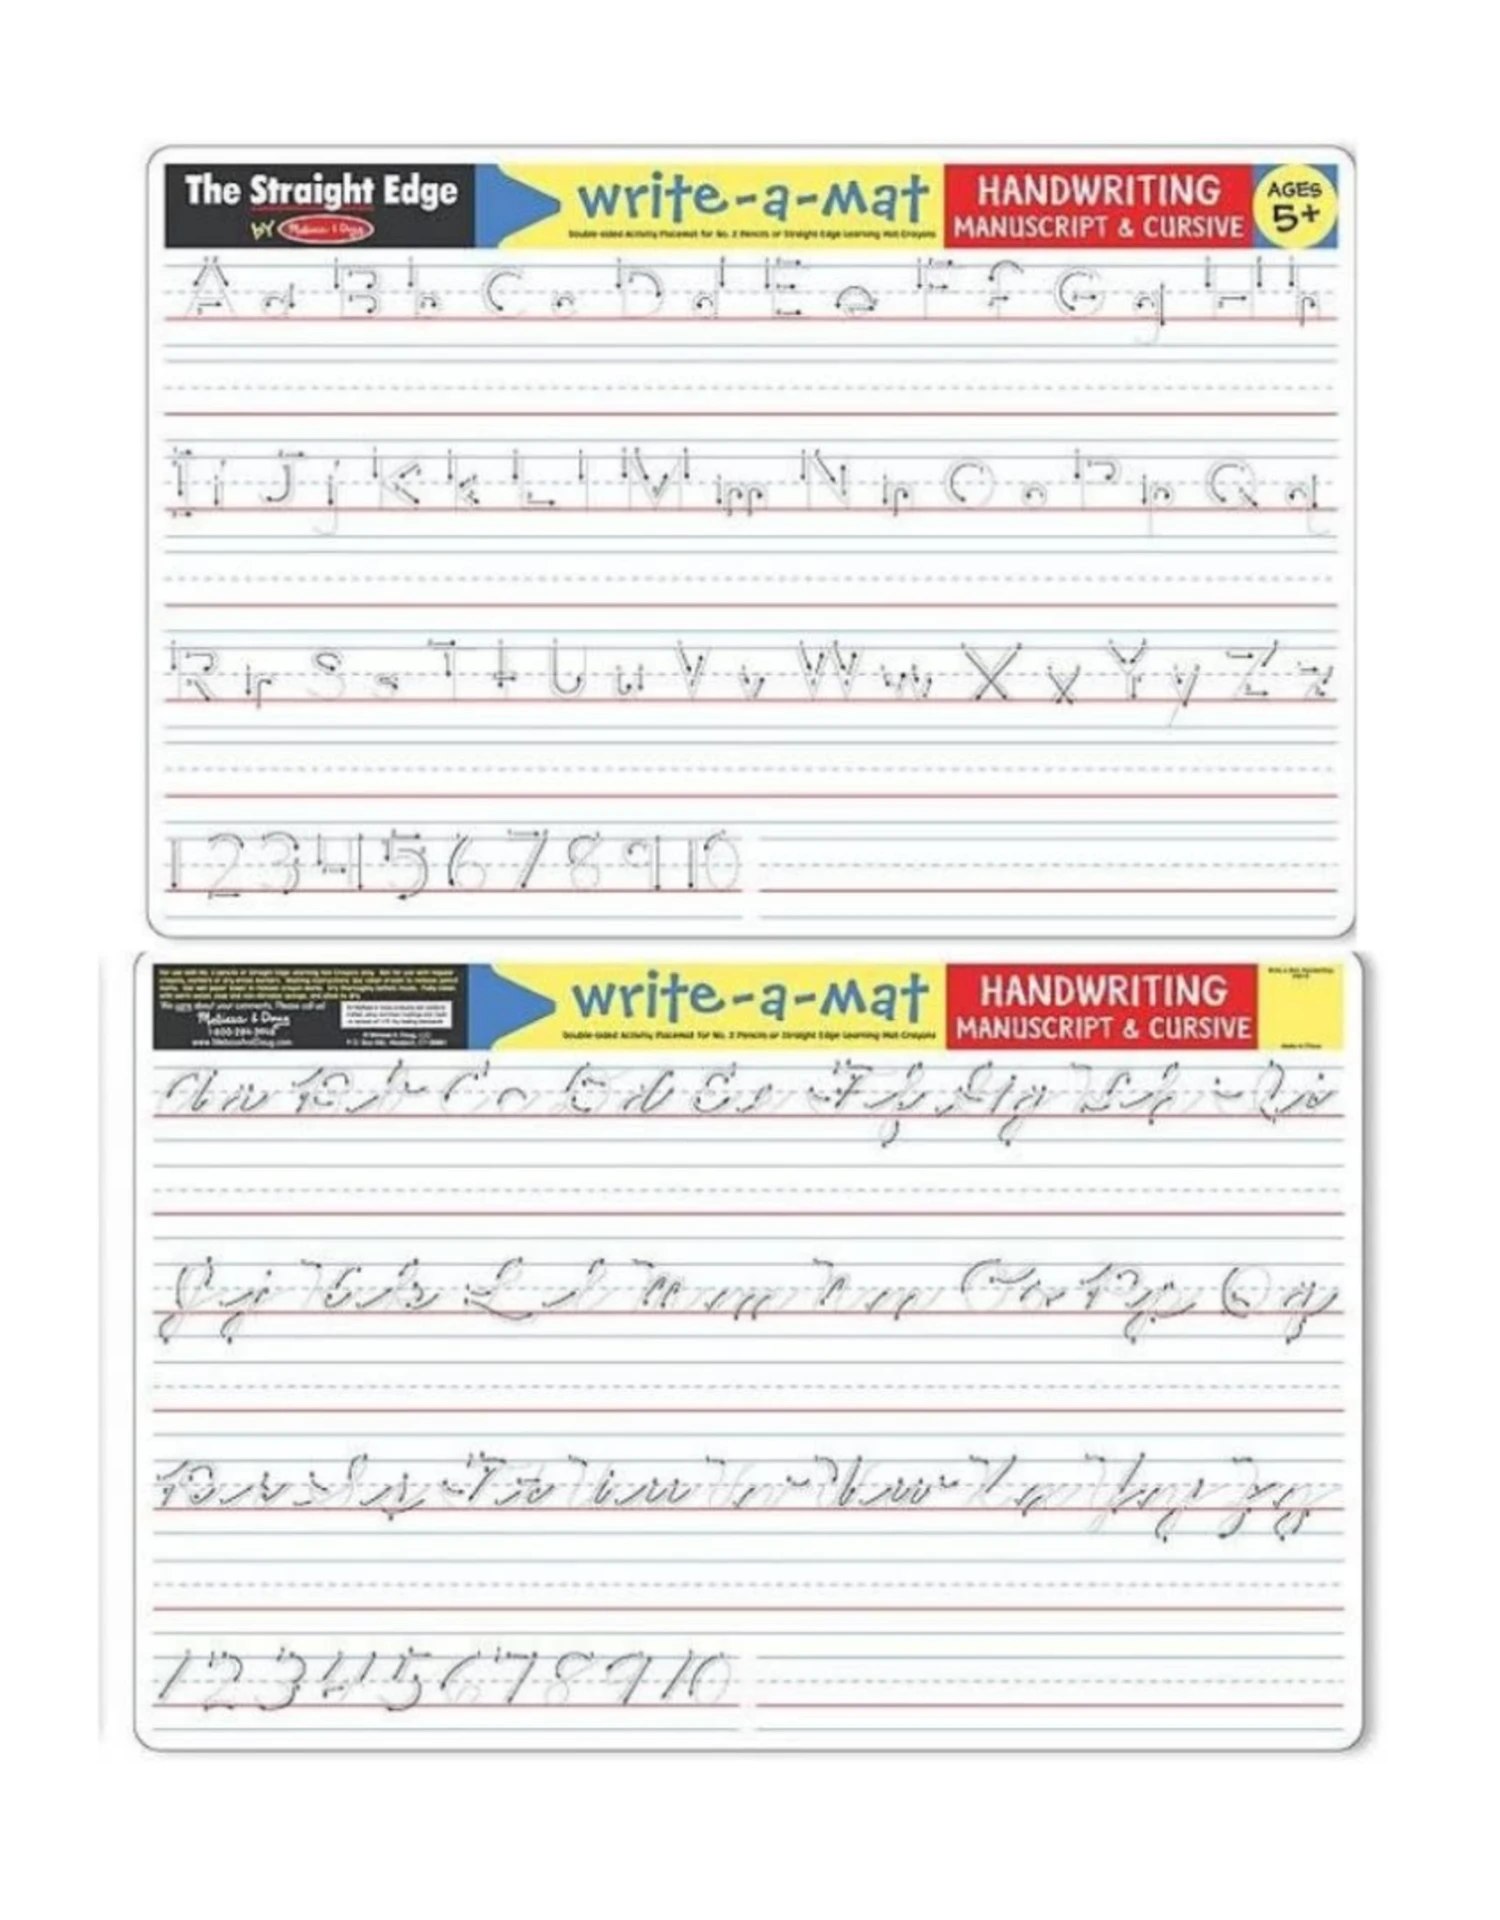 The Straight Edge
BY Melissa & Doug
write-a-mat
Double-sided Activity Placemat for No. 2 Pencils or Straight Edge Learning Mat Crayons
HANDWRITING
MANUSCRIPT & CURSIVE
AGES
5+
A a B b C c D d E e F f G g H h
I i J j K k L l M m N n O o P p Q q
R r S s T t U u V v W w X x Y y Z z
1 2 3 4 5 6 7 8 9 10
Melissa & Doug
www.MelissaAndDoug.com
write-a-mat
Double-sided Activity Placemat for No. 2 Pencils or Straight Edge Learning Mat Crayons
HANDWRITING
MANUSCRIPT & CURSIVE
Made in China
A a B b C c D d E e F f G g H h I i
J j K k L l M m N n O o P p Q q
R r S s T t U u V v W w X x Y y Z z
1 2 3 4 5 6 7 8 9 10